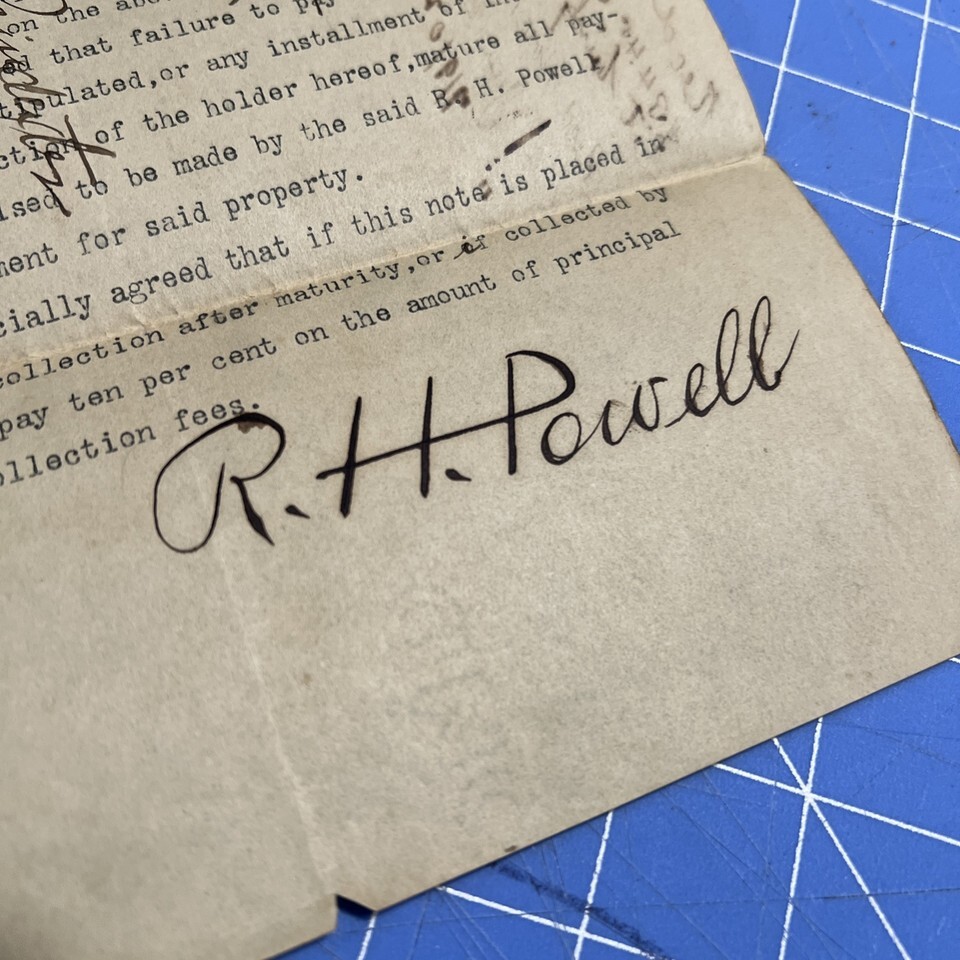 on the abo
ed that failure to pay
tipulated,or any installment of in
ction of the holder hereof,mature all pay-
ised to be made by the said B. H. Powell
ment for said property.
cially agreed that if this note is placed in
collection after maturity,or if collected by
pay ten per cent on the amount of principal
ollection fees.
R. H. Powell